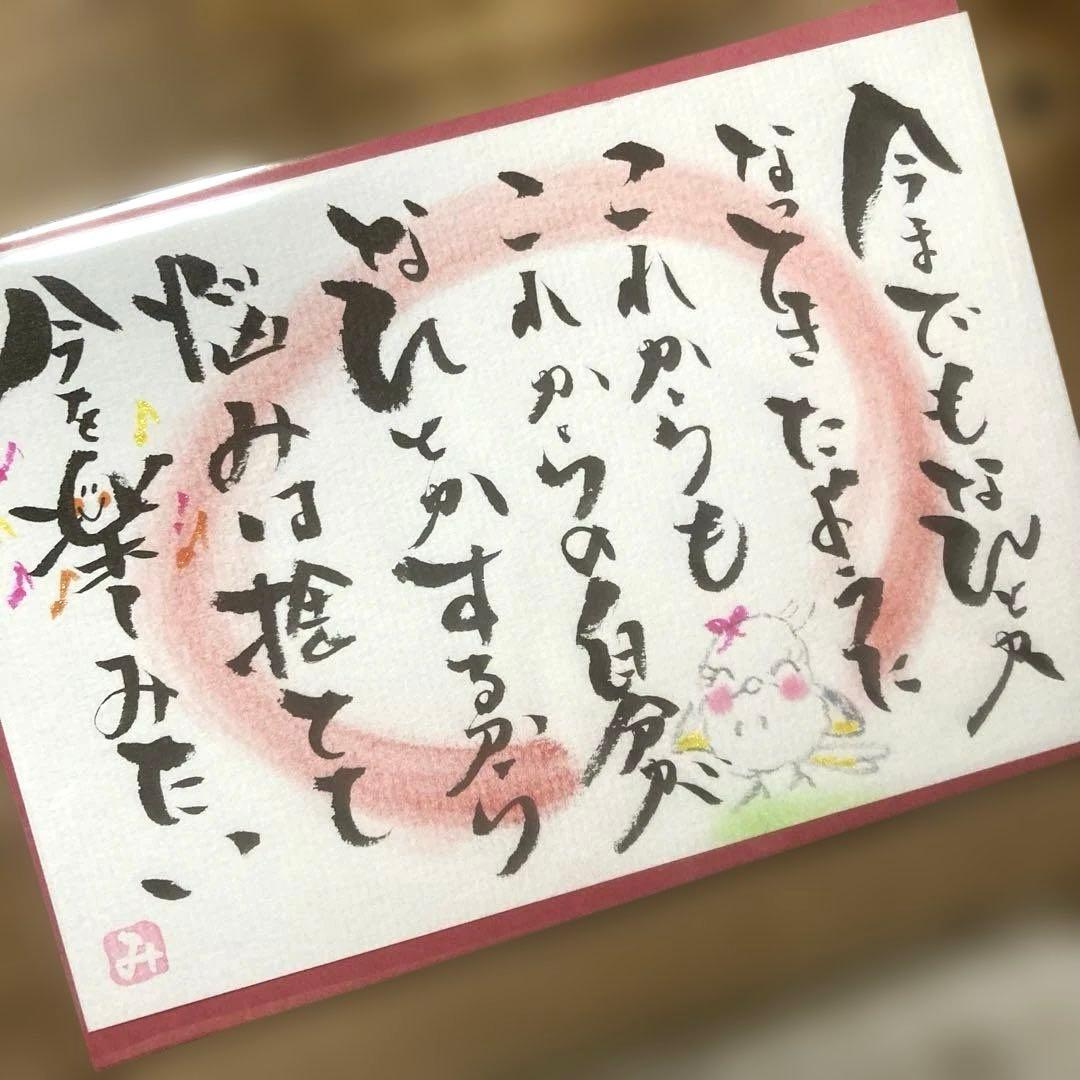 今までもなんとか
なってきたように
これからも
これからの自分が
なんとかするから
悩みは捨てて
今を楽しみたい
み